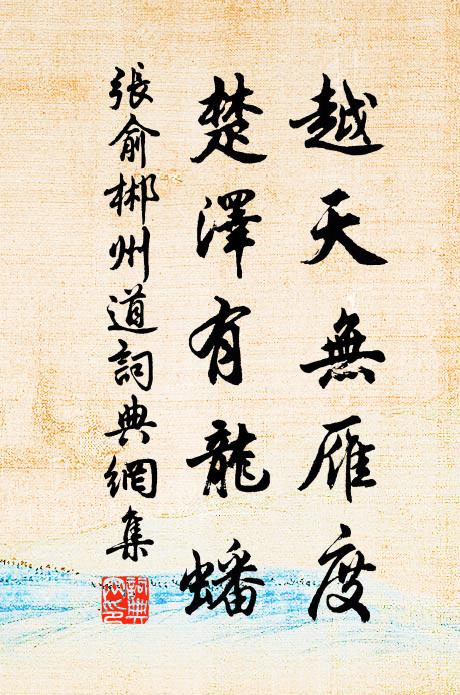 越天無雁度
楚澤有龍蟠
張俞郴州道詞典網集